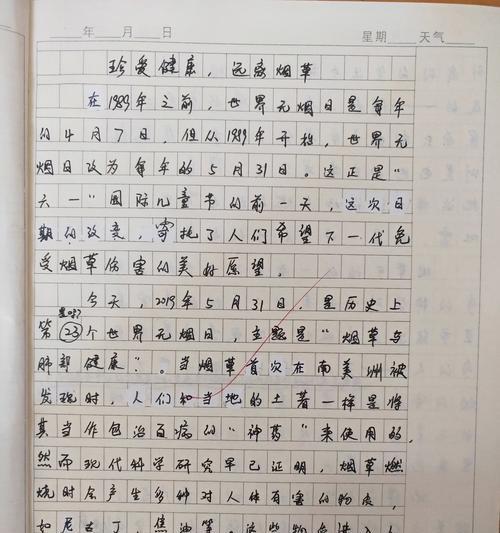 年 月 日 星期 天气
珍爱健康，远离烟草
在1989年之前，世界无烟日是每年
的4月7日，但从1989年开始，世界无
烟日改为每年的5月31日。这正是“
六一”国际儿童节的前一天，这次日
期的改变，寄托了人们希望下一代免
受烟草伤害的美好愿望。
今天，2019年5月31日，是历史上
是吗?
第23个世界无烟日，主题是“烟草与
肺部健康”。当烟草首次在南美洲被
发现时，人们和当地的土著一样是将
其当作包治百病的“神药”来使用的，
然而现代科学研究早已证明，烟草燃
烧时会产生多种对人体有害的物质，
如尼古丁，焦油等。这些物质进入人